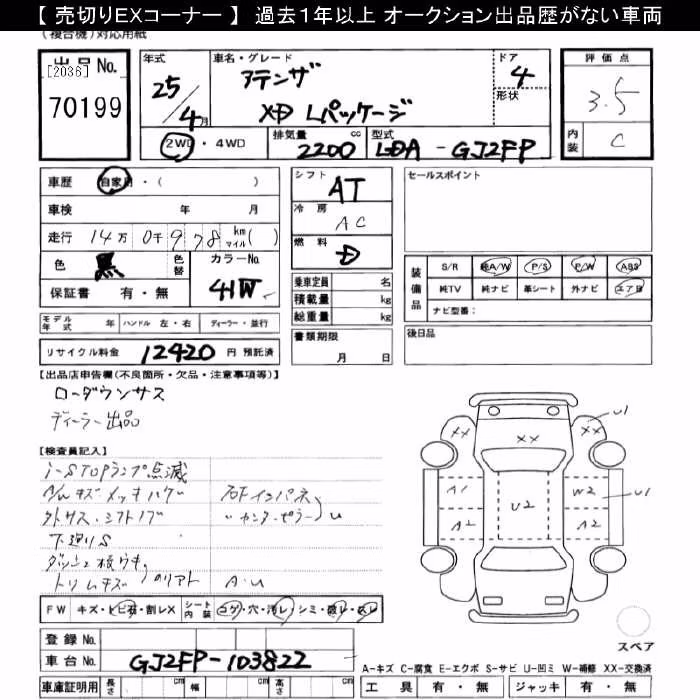 【 売切りEXコーナー 】 過去1年以上 オークション出品歴がない車両
(複合機)対応用紙
出品No.
[2036]
70199
年式 25/4月
車名・グレード
アテンザ
XD Lパッケージ
ドア 4
形状
評価点 3.5
内装 C
2WD・4WD
排気量 2200 cc
型式 LDA - GJ2FP
車歴 自家用・( )
車検 年 月
走行 14万 0千 978 km マイル( )
色 黒 色替 カラーNo. 41W
保証書 有・無
シフト AT
冷房 AC
燃料 D
乗車定員 名
積載量 kg
総重量 kg
書類期限
月 日
セールスポイント
装備品
S/R 純A/W P/S P/W ABS
純TV 純ナビ 革シート 外ナビ エアB
ナビ型番:
後日品
モデル年式 年 ハンドル 左・右 ディーラー・並行
リサイクル料金 12420 円 預託済
【出品店申告欄(不良箇所・欠品・注意事項等)】
ローダウンサス
ディーラー出品
【検査員記入】
i-STOPランプ点滅
A/Wキズ メッキハゲ
外サス・シフトノブ
下廻りS
トリムキズ
A・U
XX XX XX U1
A1 U2 W2 U1
A2 A2
FW キズ・トビ石・割レX シート内装 コゲ・穴・汚レ・シミ・破レ・スレ
登録No.
車台No. GJ2FP-103822
スペア
A-キズ C-腐食 E-エクボ S-サビ U-凹ミ W-補修 XX-交換済
車庫証明用 長さ cm 幅 cm 高さ cm
工具 有・無 ジャッキ 有・無